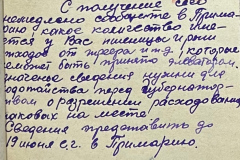 С получение сего
немедленно сообщите в Прима-
рию какое количество име-
ется у Вас пшеницы и ржи
отходов от и т.д., которые
может быть принято элеватором,
значенье сведения нужны для
ходотайства перед губернатор-
твом о разрешении расходования
таковых на месте
Сведения предоставить до
19 июня с.г. в Примарию.